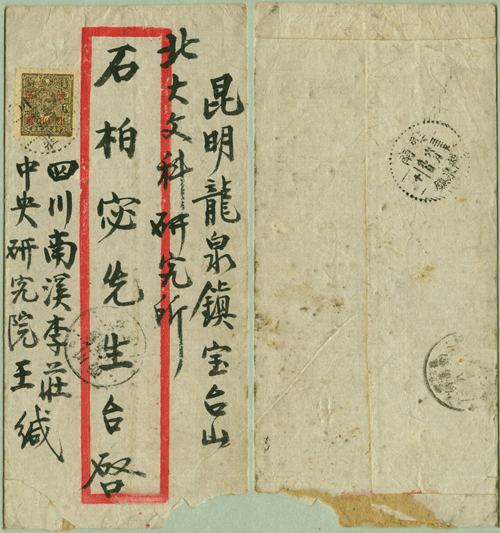 昆明龍泉鎮宝台山
北大文科研究所
石柏宓先生台啓
四川南溪李莊
中央研究院王緘